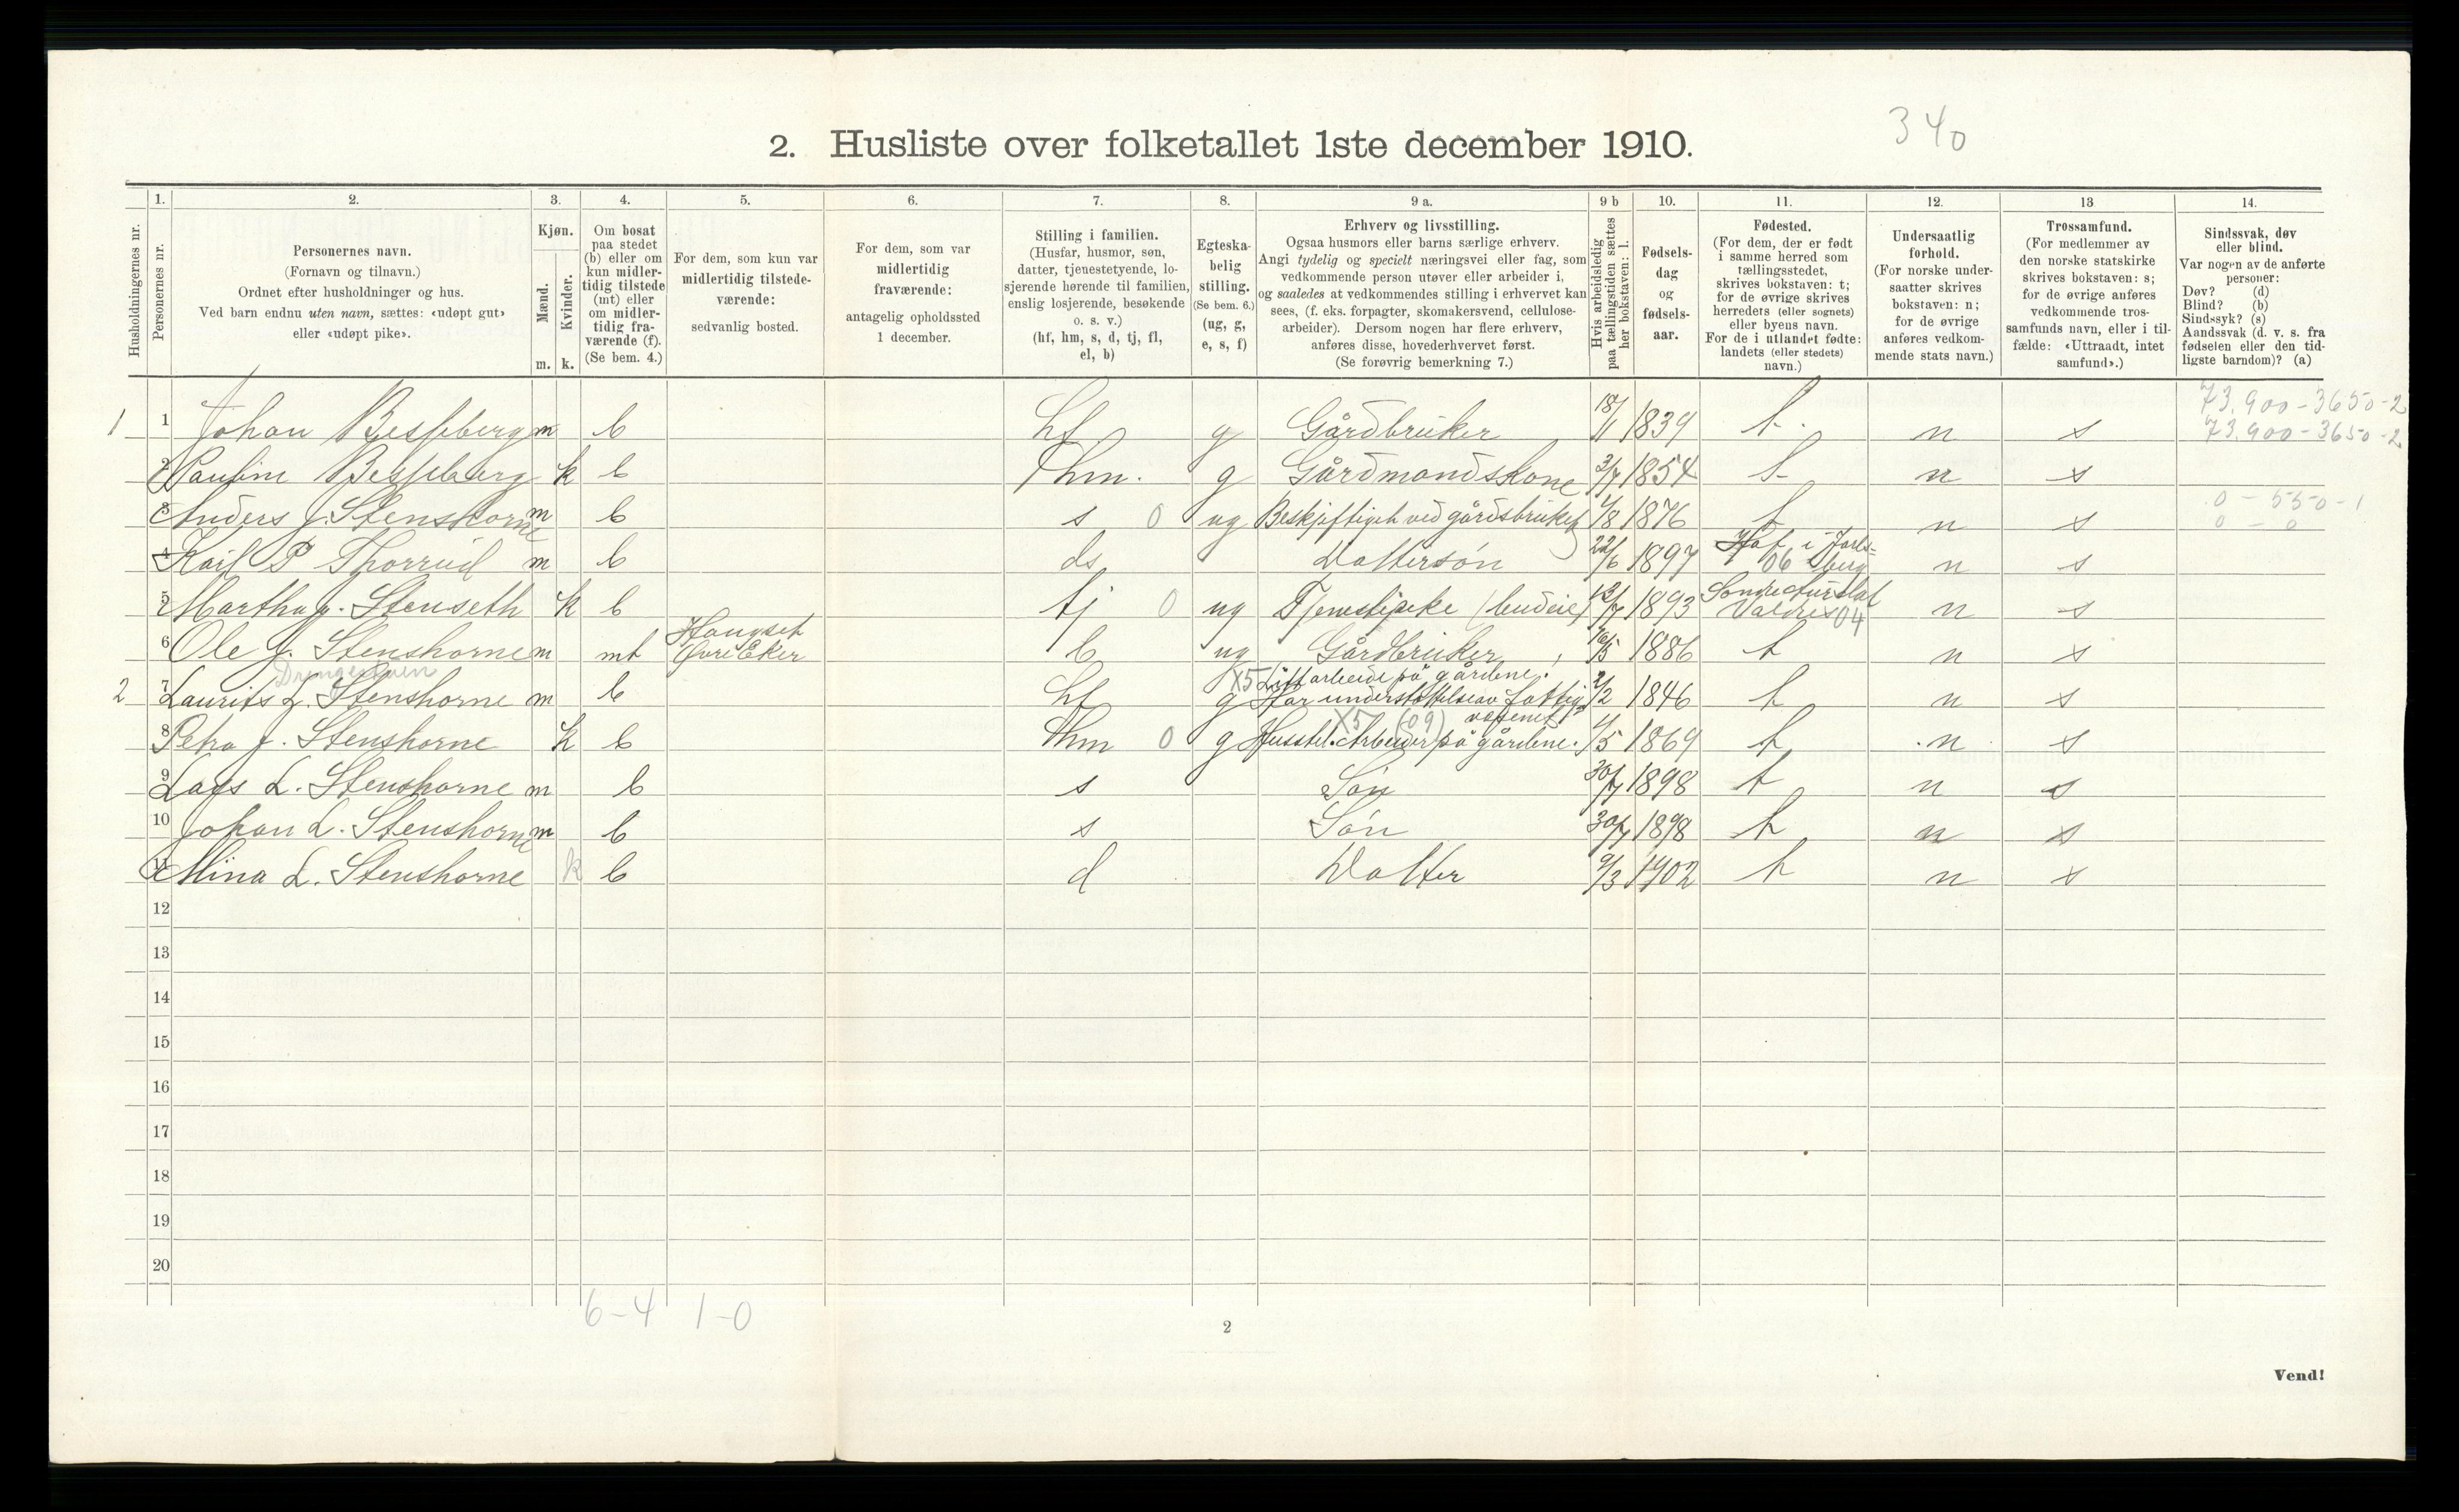 340
2. Husliste over folketallet 1ste december 1910.
Husholdningernes nr.
1. Personernes nr.
2. Personernes navn.
(Fornavn og tilnavn.)
Ordnet efter husholdninger og hus.
Ved barn endnu uten navn, sættes: «udøpt gut»
eller «udøpt pike».
3. Kjøn.
Mænd. m.
Kvinder. k.
4. Om bosat
paa stedet
(b) eller om
kun midler-
tidig tilstede
(mt) eller
om midler-
tidig fra-
værende (f).
(Se bem. 4.)
5. For dem, som kun var
midlertidig tilstede-
værende:
sedvanlig bosted.
6. For dem, som var
midlertidig
fraværende:
antagelig opholdssted
1 december.
7. Stilling i familien.
(Husfar, husmor, søn,
datter, tjenestetyende, lo-
sjerende hørende til familien,
enslig losjerende, besøkende
o. s. v.)
(hf, hm, s, d, tj, fl,
el, b)
8. Egteska-
belig
stilling.
(Se bem. 6.)
(ug, g,
e, s, f)
9 a. Erhverv og livsstilling.
Ogsaa husmors eller barns særlige erhverv.
Angi tydelig og specielt næringsvei eller fag, som
vedkommende person utøver eller arbeider i,
og saaledes at vedkommendes stilling i erhvervet kan
sees, (f. eks. forpagter, skomakersvend, cellulose-
arbeider). Dersom nogen har flere erhverv,
anføres disse, hovederhvervet først.
(Se forøvrig bemerkning 7.)
9 b Hvis arbeidsledig
paa tællingstiden sættes
her bokstaven: l.
10. Fødsels-
dag
og
fødsels-
aar.
11. Fødested.
(For dem, der er født
i samme herred som
tællingsstedet,
skrives bokstaven: t;
for de øvrige skrives
herredets (eller sognets)
eller byens navn.
For de i utlandet fødte:
landets (eller stedets)
navn.)
12. Undersaatlig
forhold.
(For norske under-
saatter skrives
bokstaven: n;
for de øvrige
anføres vedkom-
mende stats navn.)
13 Trossamfund.
(For medlemmer av
den norske statskirke
skrives bokstaven: s;
for de øvrige anføres
vedkommende tros-
samfunds navn, eller i til-
fælde: «Uttraadt, intet
samfund».)
14. Sindssvak, døv
eller blind.
Var nogen av de anførte
personer:
Døv? (d)
Blind? (b)
Sindssyk? (s)
Aandssvak (d. v. s. fra
fødselen eller den tid-
ligste barndom)? (a)
73.900-3650-2
1 1 Johan Bessberg m b hf g Gårdbruker 18/11 1839 t n s 73.900-3650-2
2 k b hm. g Gårdmandskone 3/7 1854 t n s
0-550-1
3 Anders J. Stenshorne m b s 0 ug Beskjæftiget ved gårdsbruket 1/8 1876 t n s 0-0
4 Karl P Thorrud m b ds Dattersøn 22/6 1897 Hof i Jarls-
berg 06 n s
5 Martha J. Stenseth k b tj 0 ug Tjenestepike (budeie) 1893 Søndre Aurdal
Valdres 04 n s
6 Ole J. Stenshorne m mt Haugset
Øvre Eker b ug Gårdbruker 1886 t n s
Drengestuen
X5 Litt arbeide på gårdene.
2 7 Laurits L. Stenshorne m b hf g Har understøttelse av fattig-
væsenet 2/2 1846 t n s
X5 (09)
8 Petra J. Stenshorne k b hm 0 g Husstel. Arbeider på gårdene. 1/5 1869 t n s
9 Lars L. Stenshorne m b s Søn 30/7 1898 t n s
10 Johan L. Stenshorne m b s Søn 30/7 1898 t n s
11 Mina L. Stenshorne k b d Datter 9/3 1902 t n s
12
13
14
15
16
17
18
19
20
6-4 1-0
2
Vend!